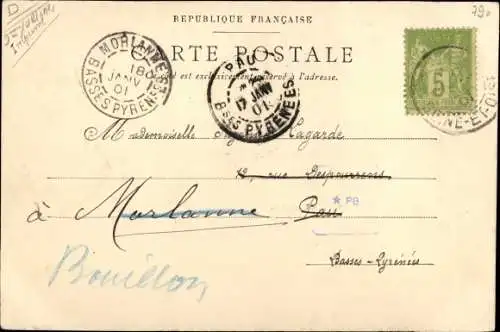 D
RÉPUBLIQUE FRANÇAISE
79c
CARTE POSTALE
est exclusivement réservé à l'adresse.
MORLANNE
18
JANV
01
BASSES PYRENÉES
PAU
17 JANV
01
Bses PYRENEES
5
Mademoiselle Lagarde
12, rue Despourrins
à Morlanne Pau
* PB
Basses-Pyrénées
Bouillon